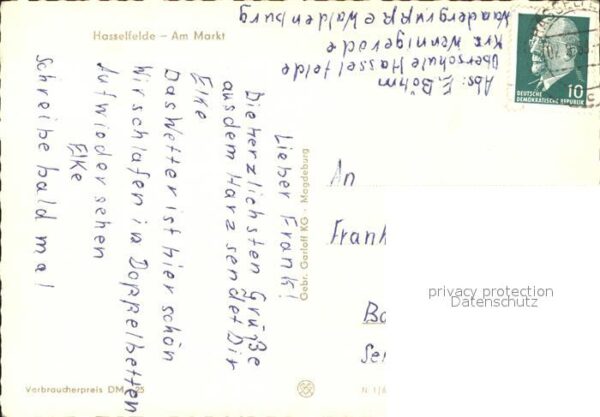 Hasselfelde – Am Markt
Abs: E. Böhm
Oberschule Hasselfelde
Krs. Wernigerode
Wandergruppe Waldenburg
DEUTSCHE
DEMOKRATISCHE REPUBLIK
10
Lieber Frank!
Die herzlichsten Grüße
aus dem Harz sendet Dir
Elke
Das Wetter ist hier schön
Wir schlafen in Doppelbetten
Aufwiedersehen
Elke
Schreibe bald mal
Gebr. Garloff KG · Magdeburg
An
Frank
privacy protection
Datenschutz
Verbraucherpreis DM